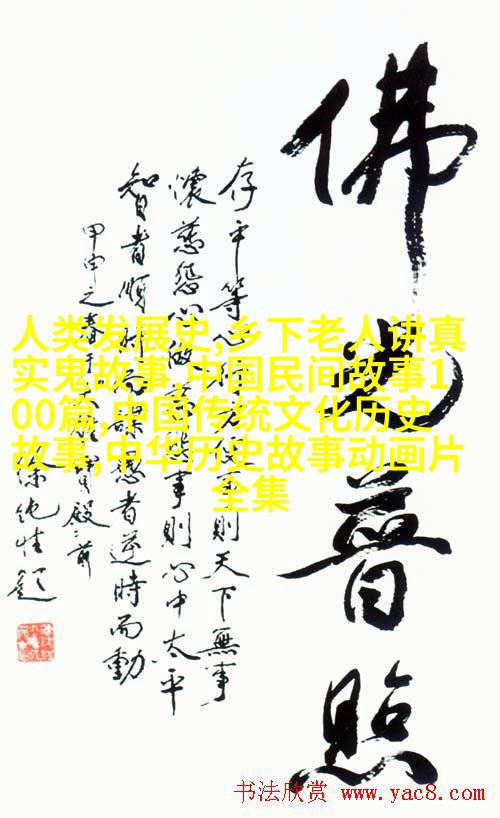 佛光普照
存平等心行方便事则天下無事
懷慈悲心做慈悲事則心中太平
智者順時而謀愚者逆時而動
甲申之春于
徐純性题
人类发展史,乡下老人讲真
实鬼故事,中国民间故事1
00篇,中国传统文化历史
故事,中华历史故事动画片
全集
书法欣赏 www.yac8.com